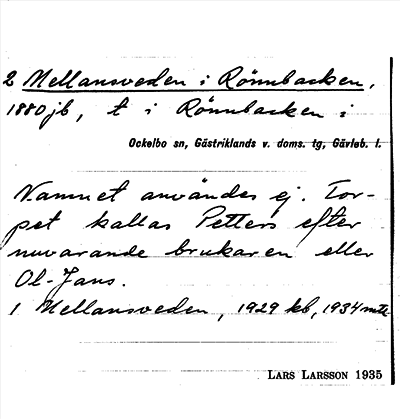 2 Mellansveden i Rönnbacken,
1880 jb, t i Rönnbacken i
Ockelbo sn, Gästriklands v. doms. tg, Gävleb. l.
Namnet användes ej. Tor-
pet kallas Petters efter
nuvarande brukaren eller
Ol-Jans.
1 Mellansveden, 1929 kb, 1934 mtl
LARS LARSSON 1935